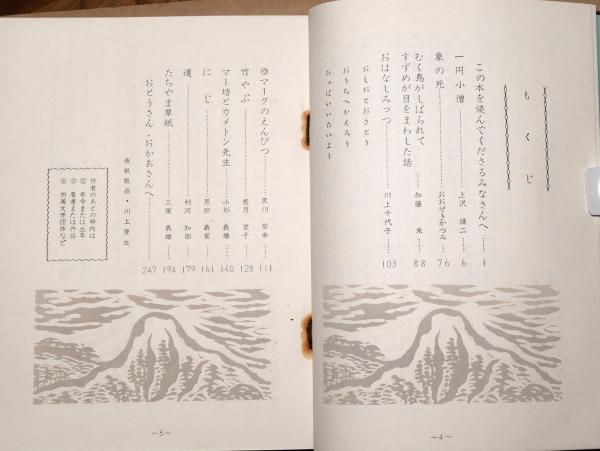 もくじ
この本を読んでくださるみなさんへ……1
一円小僧……上沢謙二…6
象の死……おおぜきかつみ…76
むく鳥がしばられて
すずめが目をまわした話……加藤 朱…88
おはなしみっつ……川上千代子…103
おしおとおさとう
おうちへかえろう
おっぱいいたいよう
—4—
マークのえんぴつ……黒川常幸…111
竹やぶ……若月夏子…128
マー坊とカメトン先生……小杉義雄…140
にじ……黒田義家…161
道……村河知郎…179
たちやま草紙……三塚義雄…194
おとうさん・おかあさんへ……247
表紙版画・川上澄生
作者のあとの枠内は
① 年令または生年
② 著書または作品
③ 所属文学団体など
—5—